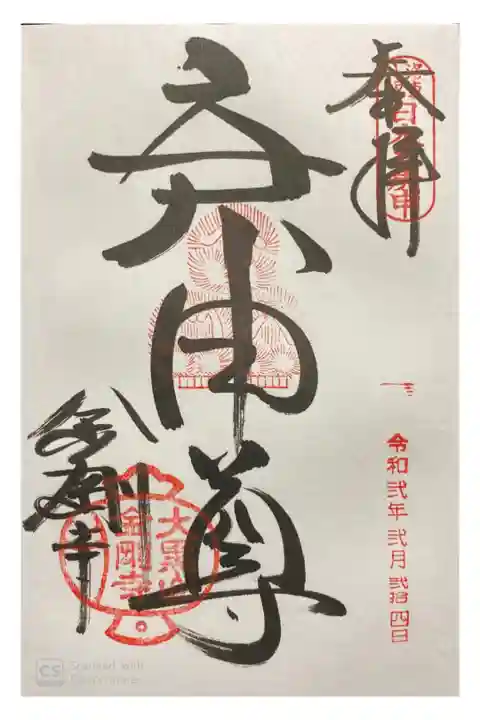 奉拝
令和弐年 弐月 弐拾四日
庚申尊
金剛寺
大黒山
金剛寺
CS Scanned with
CamScanner